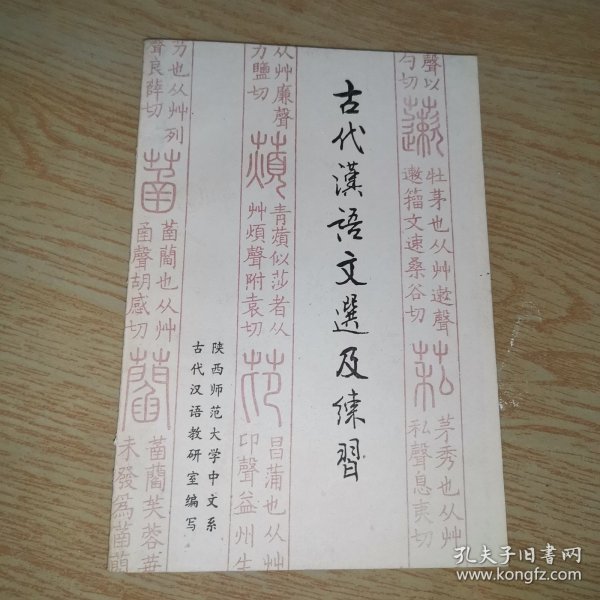 古代漢語文選及練習
陕西师范大学中文系
古代汉语教研室编写
聲以
勺切
牡茅也从艸遫聲
遫籀文速桑谷切
茅秀也从艸
私聲息夷切
从艸廉聲
力鹽切
薠
青薠似莎者从
艸煩聲附袁切
昌蒲也从艸
卬聲益州生
也从艸列
良薛切
菡
菡藺也从艸
函聲胡感切
藺
菡藺芙蓉華
未發爲菡萏
孔夫子旧书网
www.kongfz.com